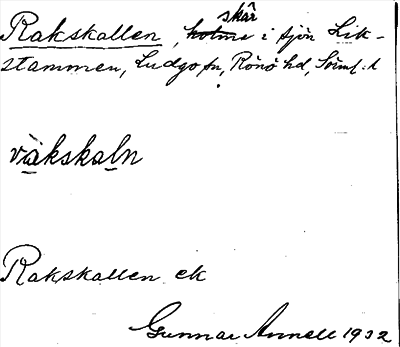 Rakskallen, skär i sjön Lik-
stammen, Ludgo sn, Rönö hd, Sörml:d
vàkskaln
Rakskallen ek
Gunnar Annell 1932